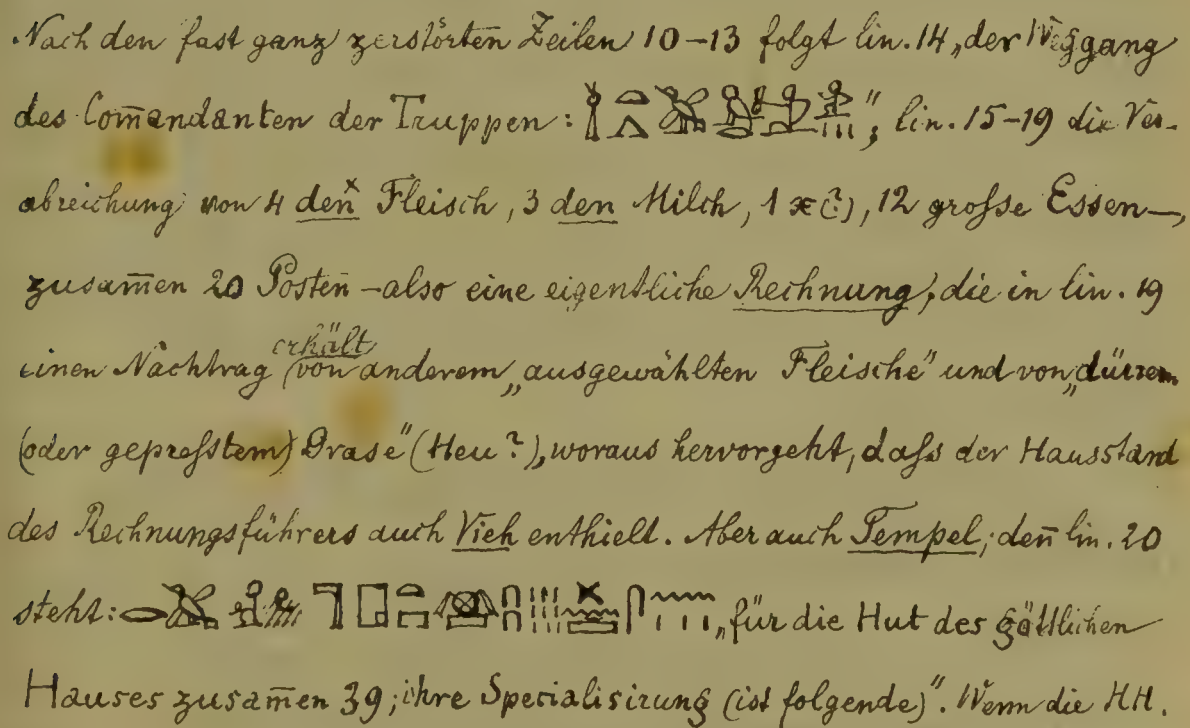 Nach den fast ganz zerstörten Zeilen 10–13 folgt lin. 14 „der Weggang
des Com̄andanten der Truppen: “; lin. 15–19 die Ver-
abreichung von 4 denˣ Fleisch, 3 den Milch, 1 x(?), 12 groſse Essen—,
zusam̄en 20 Posten – also eine eigentliche Rechnung, die in lin. 19
einen Nachtrag erhält von anderem „ausgewählten Fleische“ und von „dürrem
(oder gepreſstem) Grase“ (Heu?), woraus hervorgeht, daſs der Hausstand
des Rechnungsführers auch Vieh enthielt. Aber auch Tempel; den̄ lin. 20
steht: „für die Hut des göttlichen
Hauses zusam̄en 39; ihre Specialisirung (ist folgende)“. Wenn die HH.